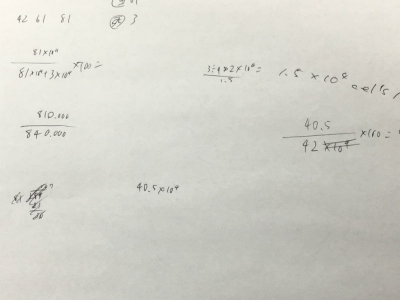 42 61 81
3
81×10⁴
81×10⁴+3×10⁴ ×100=
1.5 1.5 × 10⁸ cells
810.000
840.000
40.5
42 ×10⁴ ×100 =
40.5×10⁴